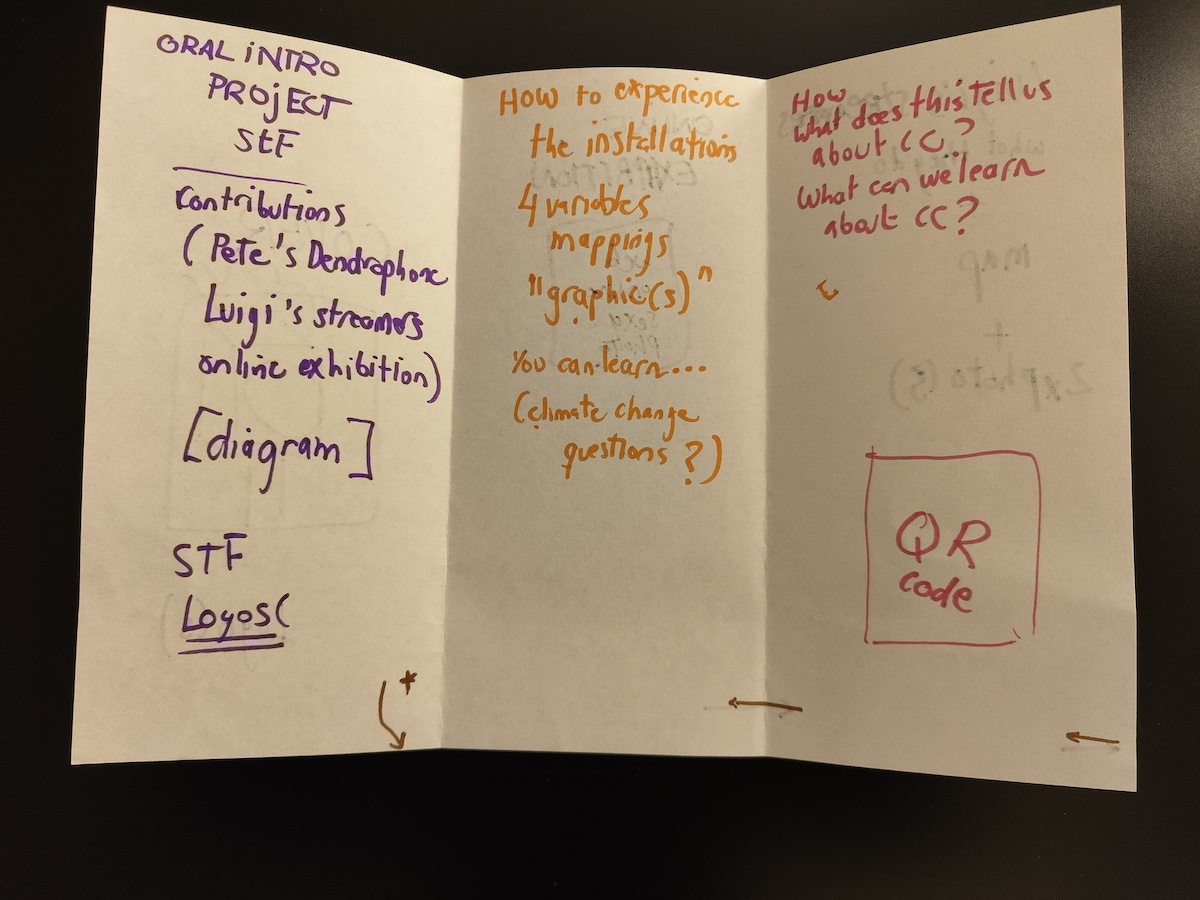 ORAL iNTRO
PROjECT
StF
Contributions
(Pete's Dendrophone
Luigi's streamers
online exhibition)
[diagram]
STF
Logos(
*
How to experience
the installations
4 variables
mappings
"graphic(s)"
You can learn...
(climate change
questions?)
How
What does this tell us
about CC?
What can we learn
about CC?
QR
code
map
+
2x photo(s)